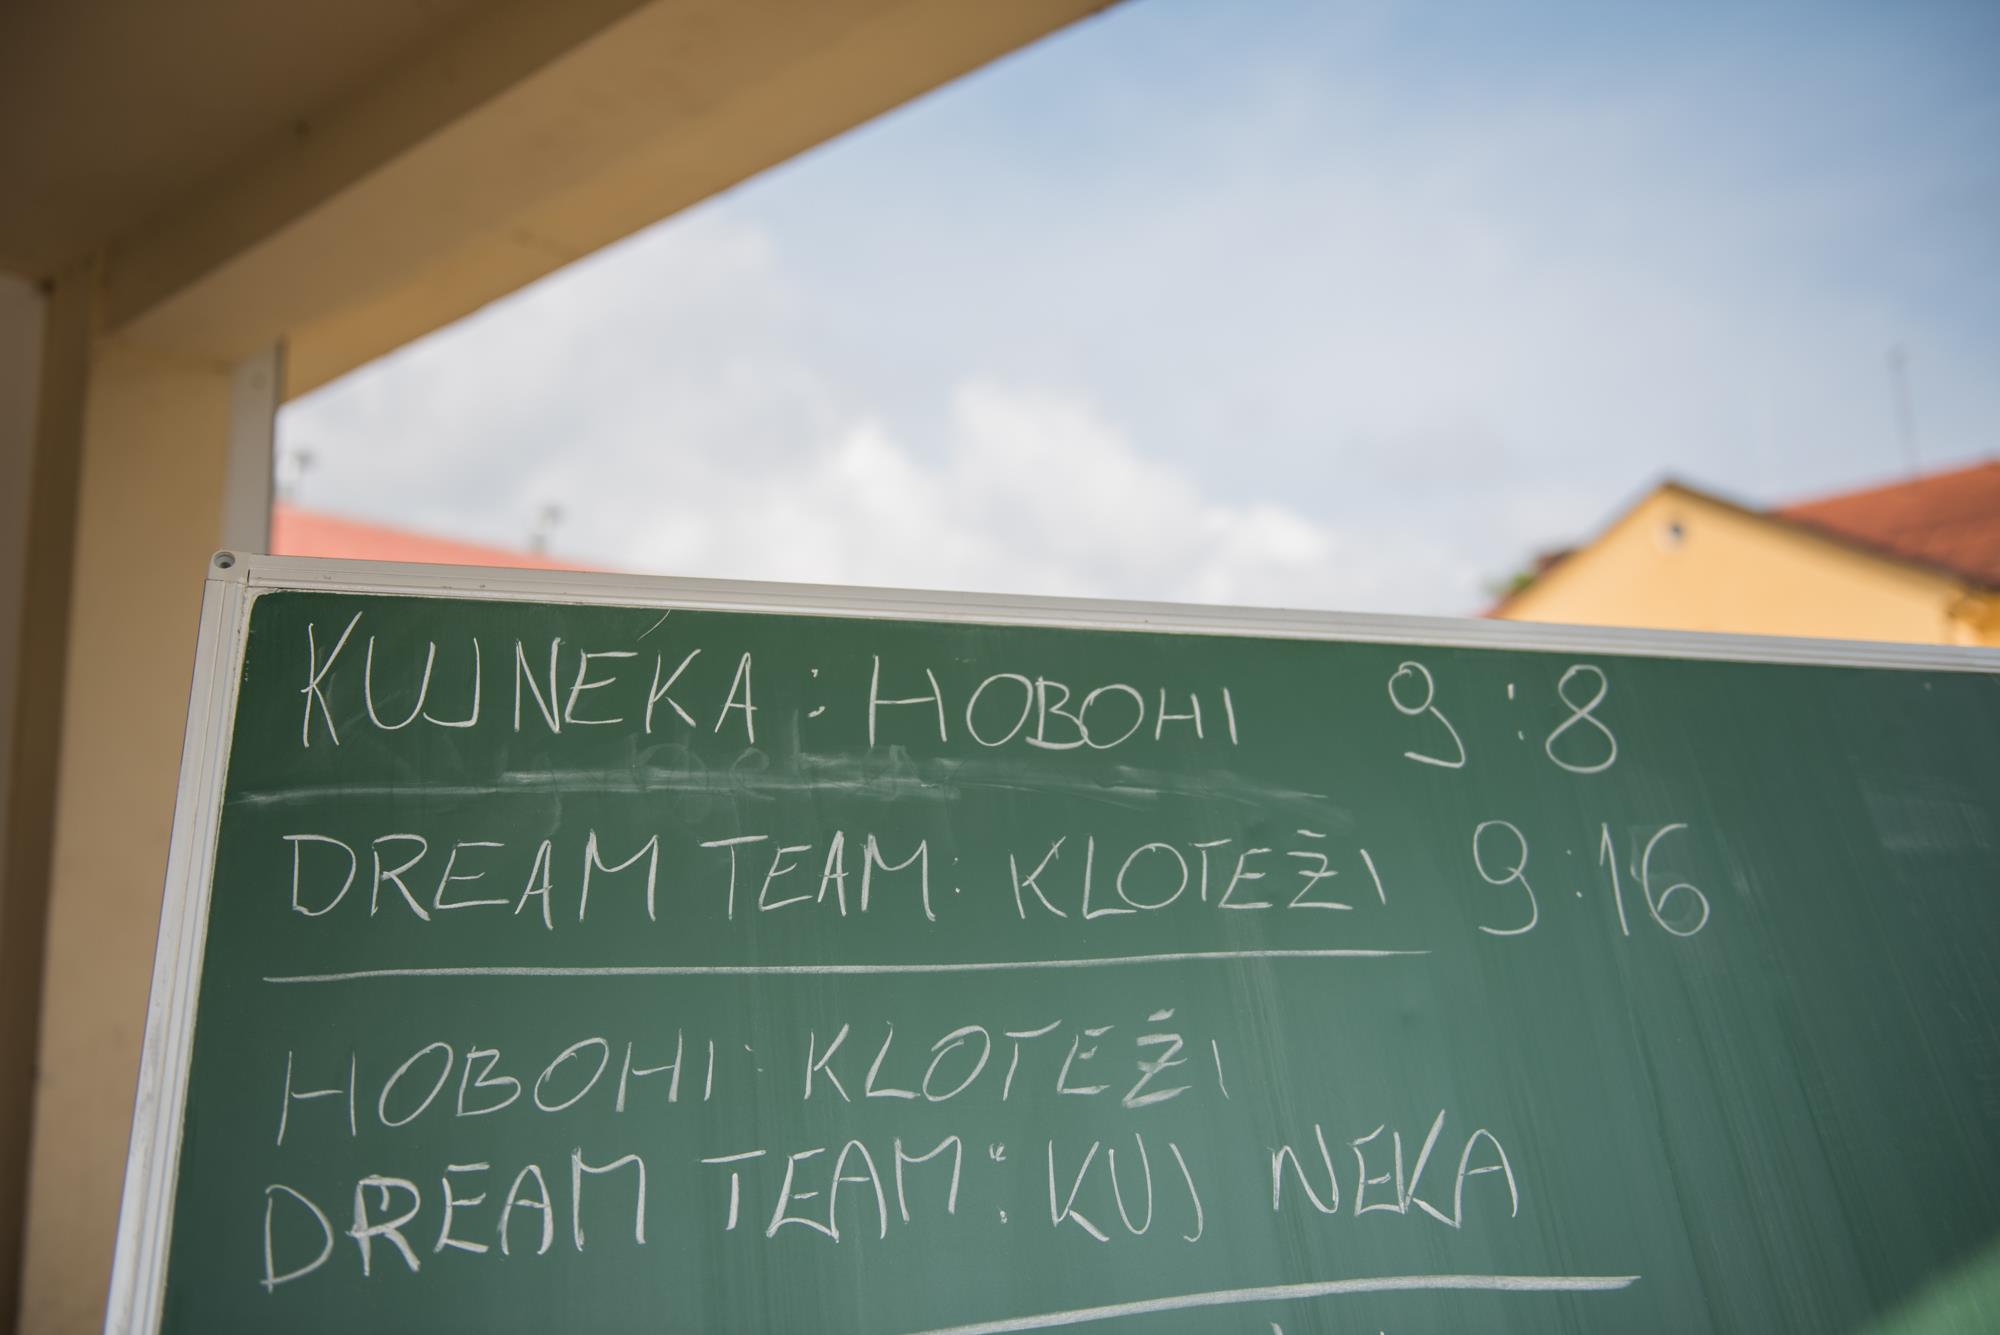 KUJ NEKA : HOBOHI 9 : 8
DREAM TEAM : KLOTEŽI 9 : 16
HOBOHI : KLOTEŽI
DREAM TEAM : KUJ NEKA